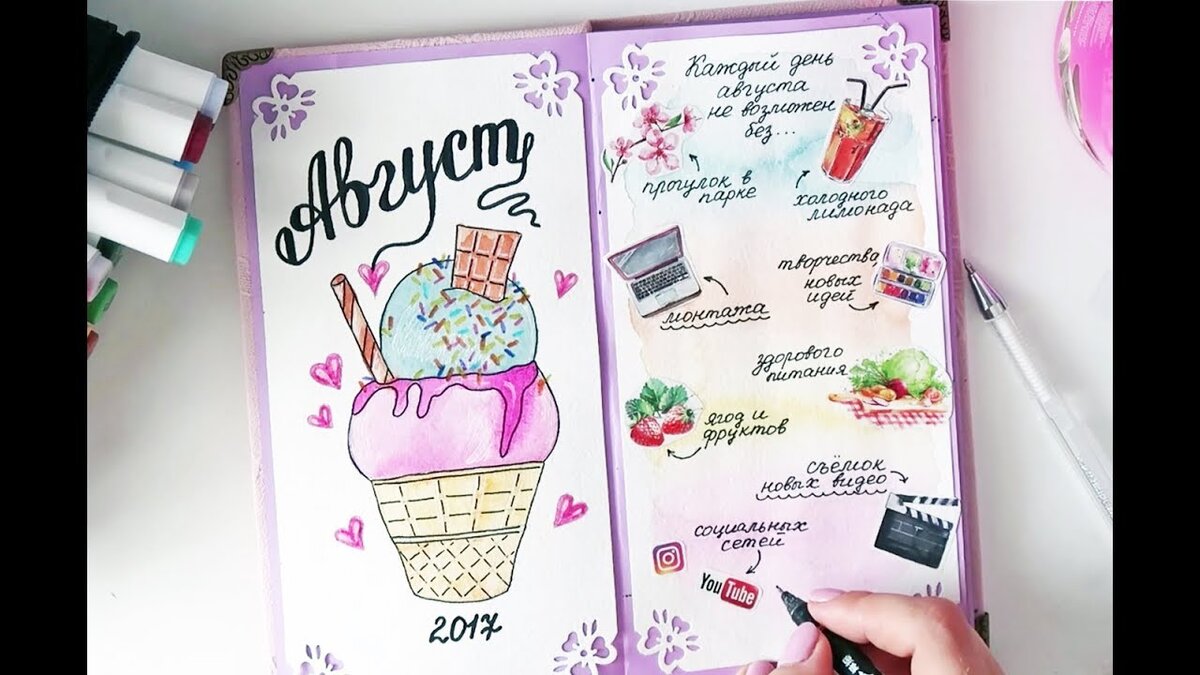 Август
2017
Каждый день
августа
не возможен
без...
прогулок в
парке
холодного
лимонада
монтажа
творчества
новых
идей
здорового
питания
ягод и
фруктов
съёмок
новых видео
социальных
сетей
YouTube